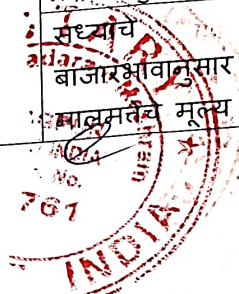 सध्याचे
बाजारभावानुसार
मालमत्तेचे मूल्य
No.
761
INDIA